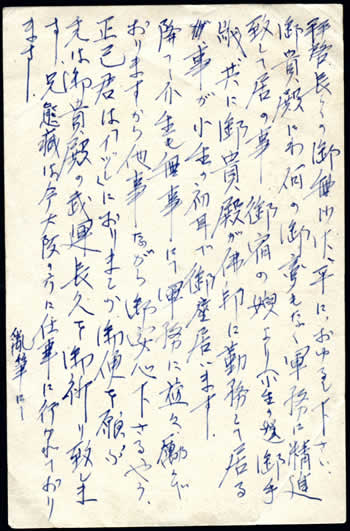 拝啓長らくの御無沙汰、平におゆるし下さい
御貴殿にわ何の御変もなく軍務に精進
致して居の事 御宿の嫂より小生の嫂 御手
紙 共に御貴殿が佛印に勤務して居る
事が小生の初耳で御座居います、
降って小生も無事にて軍務に益々励んで
おりますから他事ながら御安心下さるやう、
正己君はイヅくにおりますか御便を願ふ
先は御貴殿の武運長久を御祈り致しま
す、兄 熊藏は今大阪の方に仕事に行かれており
ます、
乱筆にて